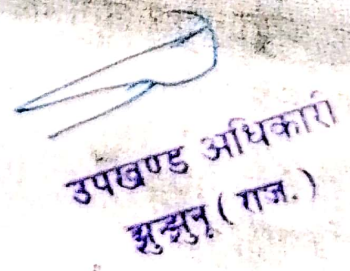 उपखण्ड अधिकारी
झुन्झुनू ( राज. )